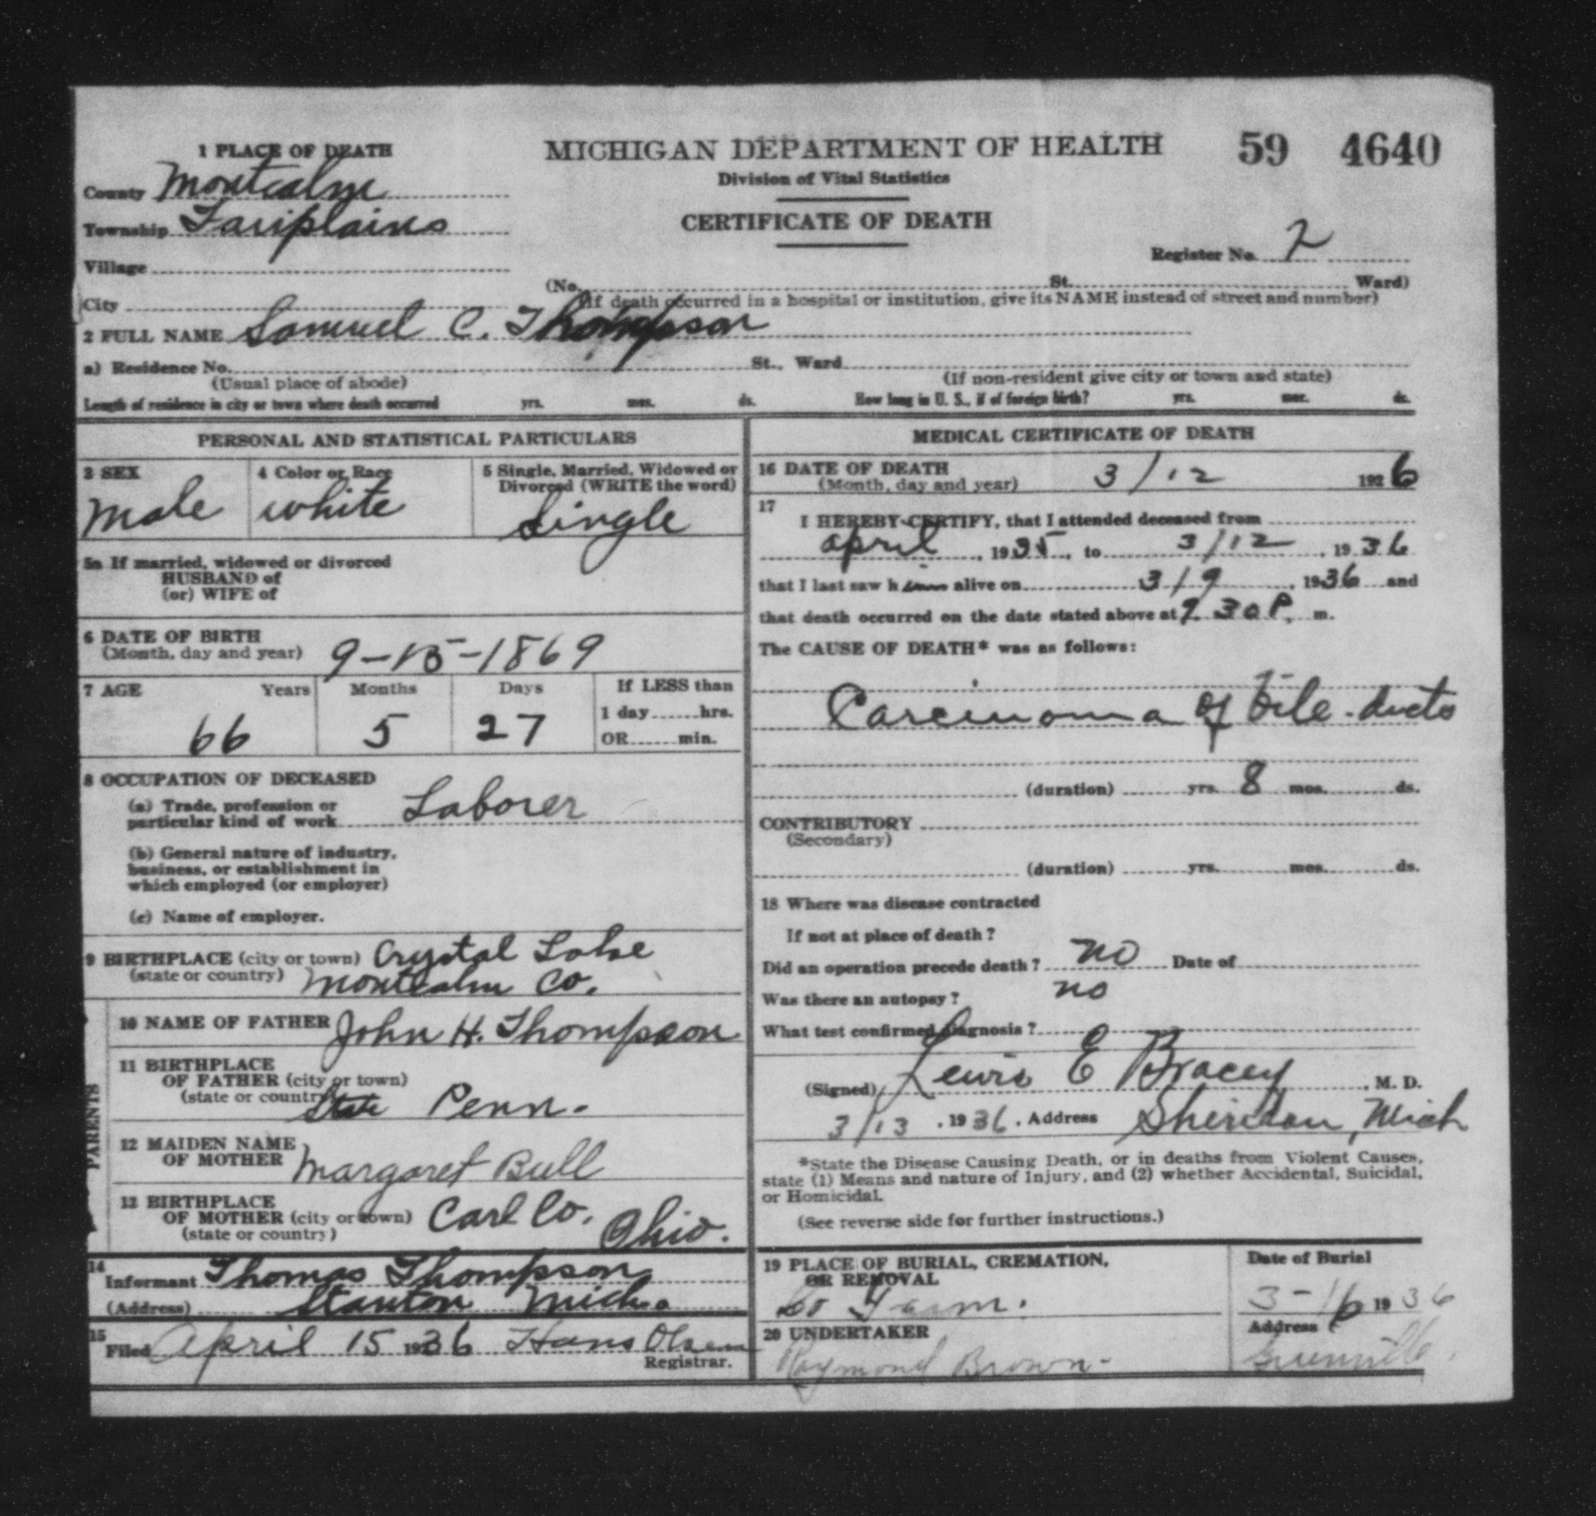 1 PLACE OF DEATH
MICHIGAN DEPARTMENT OF HEALTH 59 4640
Division of Vital Statistics
CERTIFICATE OF DEATH
County Montcalm
Township Fairplains
Village
Register No. 2
City
(No. St. Ward)
(If death occurred in a hospital or institution, give its NAME instead of street and number)
2 FULL NAME Samuel C. Thompson
a) Residence No. St., Ward
(Usual place of abode) (If non-resident give city or town and state)
Length of residence in city or town where death occurred yrs. mos. ds. How long in U. S., if of foreign birth? yrs. mos. ds.
PERSONAL AND STATISTICAL PARTICULARS
3 SEX 4 Color or Race 5 Single, Married, Widowed or
Divorced (WRITE the word)
Male white Single
5a If married, widowed or divorced
HUSBAND of
(or) WIFE of
6 DATE OF BIRTH
(Month, day and year) 9-15-1869
7 AGE Years Months Days If LESS than
1 day hrs.
66 5 27 OR min.
8 OCCUPATION OF DECEASED
(a) Trade, profession or
particular kind of work Laborer
(b) General nature of industry,
business, or establishment in
which employed (or employer)
(c) Name of employer.
9 BIRTHPLACE (city or town) Crystal Lake
(state or country) Montcalm Co.
PARENTS
10 NAME OF FATHER John H. Thompson
11 BIRTHPLACE
OF FATHER (city or town)
(state or country) State Penn.
12 MAIDEN NAME
OF MOTHER Margaret Bull
13 BIRTHPLACE
OF MOTHER (city or town) Carl Co. Ohio.
(state or country)
14
Informant Thomas Thompson
(Address) Stanton Mich.
15
Filed April 15 1936 Hans Olsen
Registrar.
MEDICAL CERTIFICATE OF DEATH
16 DATE OF DEATH
(Month, day and year) 3/12 1926
17
I HEREBY CERTIFY, that I attended deceased from
april, 1935, to 3/12, 1936
that I last saw him alive on 3/9, 1936 and
that death occurred on the date stated above at 9.30 P. m.
The CAUSE OF DEATH* was as follows:
Carcinoma of bile-ducts
(duration) yrs. 8 mos. ds.
CONTRIBUTORY
(Secondary)
(duration) yrs. mos. ds.
18 Where was disease contracted
If not at place of death?
Did an operation precede death? no Date of
Was there an autopsy? no
What test confirmed diagnosis?
(Signed) Lewis E Bracey, M. D.
3/13, 1936. Address Sheridan, Mich
*State the Disease Causing Death, or in deaths from Violent Causes,
state (1) Means and nature of Injury, and (2) whether Accidental, Suicidal,
or Homicidal.
(See reverse side for further instructions.)
19 PLACE OF BURIAL, CREMATION,
OR REMOVAL
Co Farm.
Date of Burial
3-16 1936
20 UNDERTAKER
Raymond Brown-
Address
Greenville.